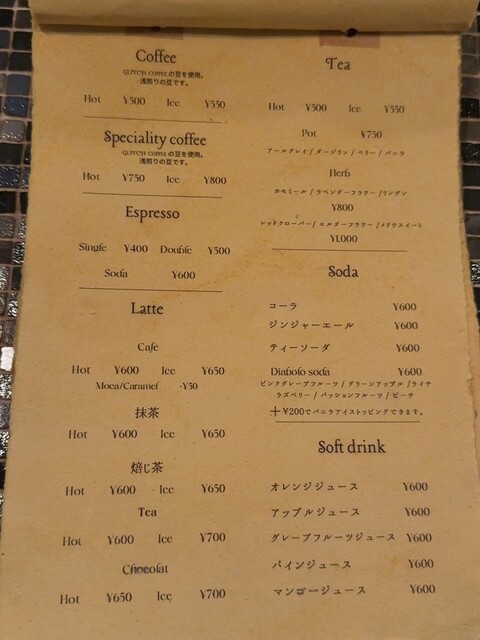 Coffee
GLITCH COFFEE の豆を使用。
浅煎りの豆です。
Hot ¥500 Ice ¥550
Speciality coffee
GLITCH COFFEE の豆を使用。
浅煎りの豆です。
Hot ¥750 Ice ¥800
Espresso
Single ¥400 Double ¥500
Soda ¥600
Latte
Cafe
Hot ¥600 Ice ¥650
Moca/Caramel +¥50
抹茶
Hot ¥600 Ice ¥650
焙じ茶
Hot ¥600 Ice ¥650
Tea
Hot ¥600 Ice ¥700
Chocolat
Hot ¥650 Ice ¥700
Tea
Hot ¥500 Ice ¥550
Pot ¥750
アールグレイ / ダージリン / ベリー / バニラ
Herb
カモミール / ラベンダーフラワー / リンデン
¥800
レッドクローバー / エルダーフラワー / メドウスイート
¥1,000
Soda
コーラ ¥600
ジンジャーエール ¥600
ティーソーダ ¥600
Diabolo soda ¥600
ピンクグレープフルーツ / グリーンアップル / ライチ
ラズベリー / パッションフルーツ / ピーチ
+¥200でバニラアイストッピングできます。
Soft drink
オレンジジュース ¥600
アップルジュース ¥600
グレープフルーツジュース ¥600
パインジュース ¥600
マンゴージュース ¥600